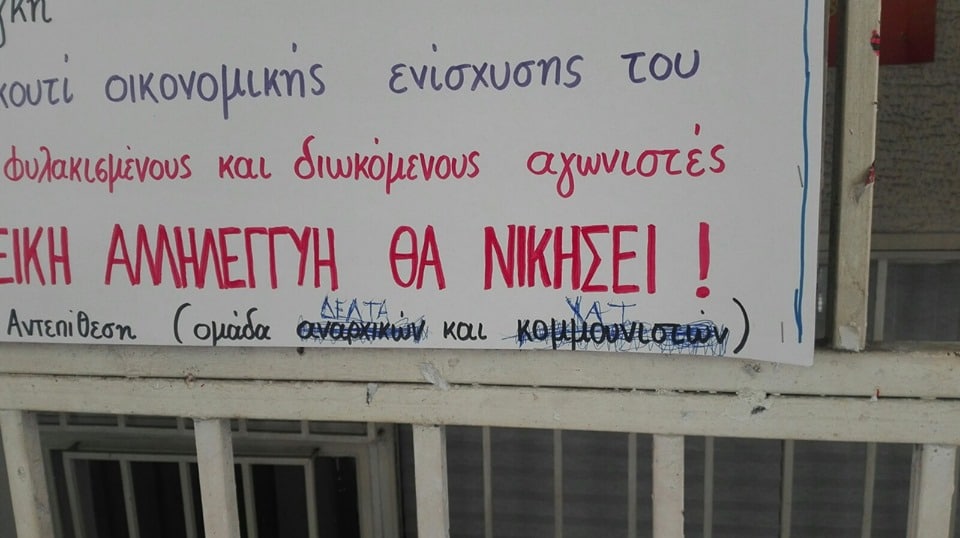 γκη
κουτί οικονομικής ενίσχυσης του
φυλακισμένους και διωκόμενους αγωνιστές
ΕΙΚΗ ΑΛΛΗΛΕΓΓΥΗ ΘΑ ΝΙΚΗΣΕΙ !
ΔΕΛΤΑ ΥΑΤ
Αντεπίθεση (ομάδα αναρχικών και κομμουνιστών)